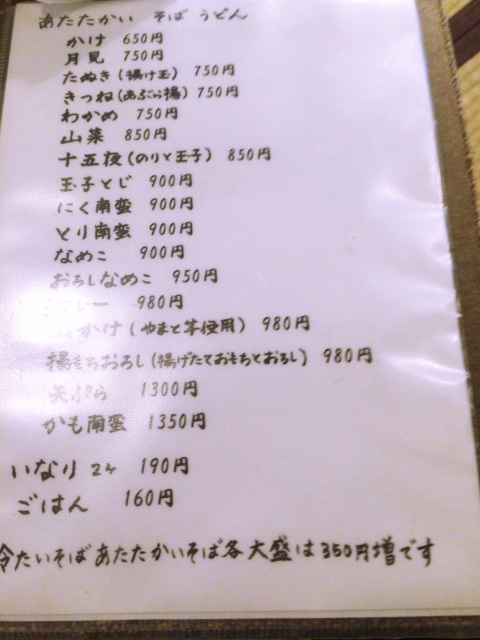 あたたかい そば うどん
かけ 650円
月見 750円
たぬき(揚げ玉) 750円
きつね(あぶら揚) 750円
わかめ 750円
山菜 850円
十五夜(のりと玉子) 850円
玉子とじ 900円
にく南蛮 900円
とり南蛮 900円
なめこ 900円
おろしなめこ 950円
カレー 980円
かけ(やまと芋使用) 980円
揚もちおろし(揚げたておもちとおろし) 980円
天ぷら 1300円
かも南蛮 1350円
いなり 2ヶ 190円
ごはん 160円
冷たいそばあたたかいそば各大盛は350円増です